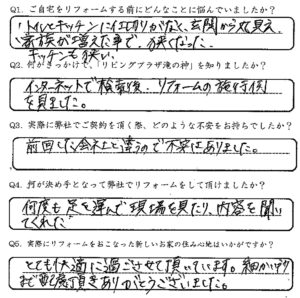 Q1. ご自宅をリフォームする前にどんなことに悩んでいましたか？
トイレとキッチンに仕切りがなく、玄関から丸見え
家族が増えた事で、狭くなった。
キッチンも狭い。
Q2. 何がきっかけで、「リビングプラザ滝の神」を知りましたか？
インターネットで検索後、リフォームの施行例
を見ました。
Q3. 実際に弊社でご契約を頂く際、どのような不安をお持ちでしたか？
前回した会社と違うので不安はありました。
Q4. 何が決め手となって弊社でリフォームをして頂けましたか？
何度も足を運んで現場を見たり、内容を聞い
てくれた
Q5. 実際にリフォームをおこなった新しいお家の住み心地はいかがですか？
とても快適に過ごさせて頂いています。細かい所
まで配慮頂きありがとうございました。